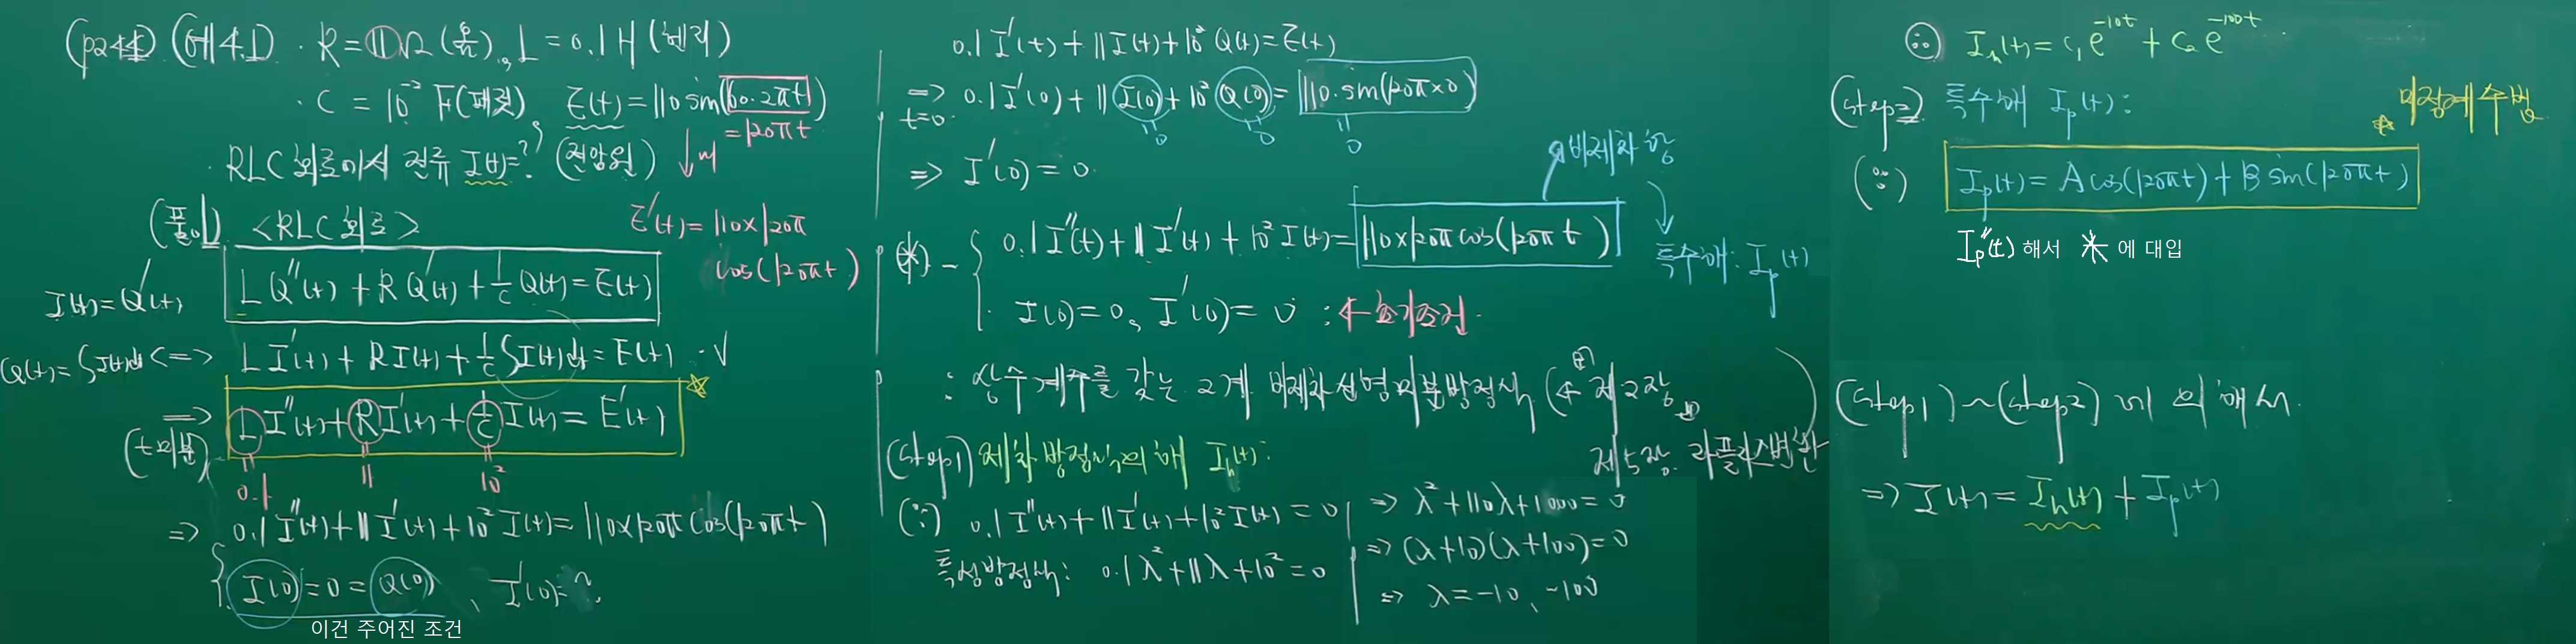 (p244) (예4.1) · R=11Ω(옴), L=0.1H(헨리)
· C=10⁻²F(패럿), E(t)=110sin(60·2πt)
=120πt
· RLC회로에서 전류 I(t)=? (전압원)
↓ 미
(풀이) <RLC회로>
E'(t)=110×120π
cos(120πt)
I(t)=Q'(t)
LQ''(t)+RQ'(t)+1/C Q(t)=E(t)
Q(t)=∫I(t)dt <=> LI'(t)+RI(t)+1/C ∫I(t)dt=E(t) ·√
=> LI''(t)+RI'(t)+1/C I(t)=E'(t) ☆
(t미분)
0.1 11 10²
=> 0.1I''(t)+11I'(t)+10²I(t)=110×120πcos(120πt)
I(0)=0=Q(0), I'(0)=?
이건 주어진 조건
0.1I'(t)+11I(t)+10²Q(t)=E(t)
=> 0.1I'(0)+11I(0)+10²Q(0)=110·sin(120π×0)
t=0
0 0 0
=> I'(0)=0
비제차항
(*) 0.1I''(t)+11I'(t)+10²I(t)=110×120πcos(120πt)
특수해: Ip(t)
I(0)=0, I'(0)=0 : ← 초기조건
: 상수계수를 갖는 2계 비제차선형미분방정식 (← 제2장
제5장 라플라스변환
(step1) 제차방정식의 해 Ih(t):
(∵) 0.1I''(t)+11I'(t)+10²I(t)=0
특성방정식: 0.1λ²+11λ+10²=0
=> λ²+110λ+1000=0
=> (λ+10)(λ+100)=0
=> λ=-10, -100
∴ Ih(t)=c₁e⁻¹⁰ᵗ+c₂e⁻¹⁰⁰ᵗ
(step2) 특수해 Ip(t):
☆ 미정계수법
(∵) Ip(t)=Acos(120πt)+Bsin(120πt)
Ip''(t) 해서 * 에 대입
(step1)~(step2)에 의해서
=> I(t)=Ih(t)+Ip(t)